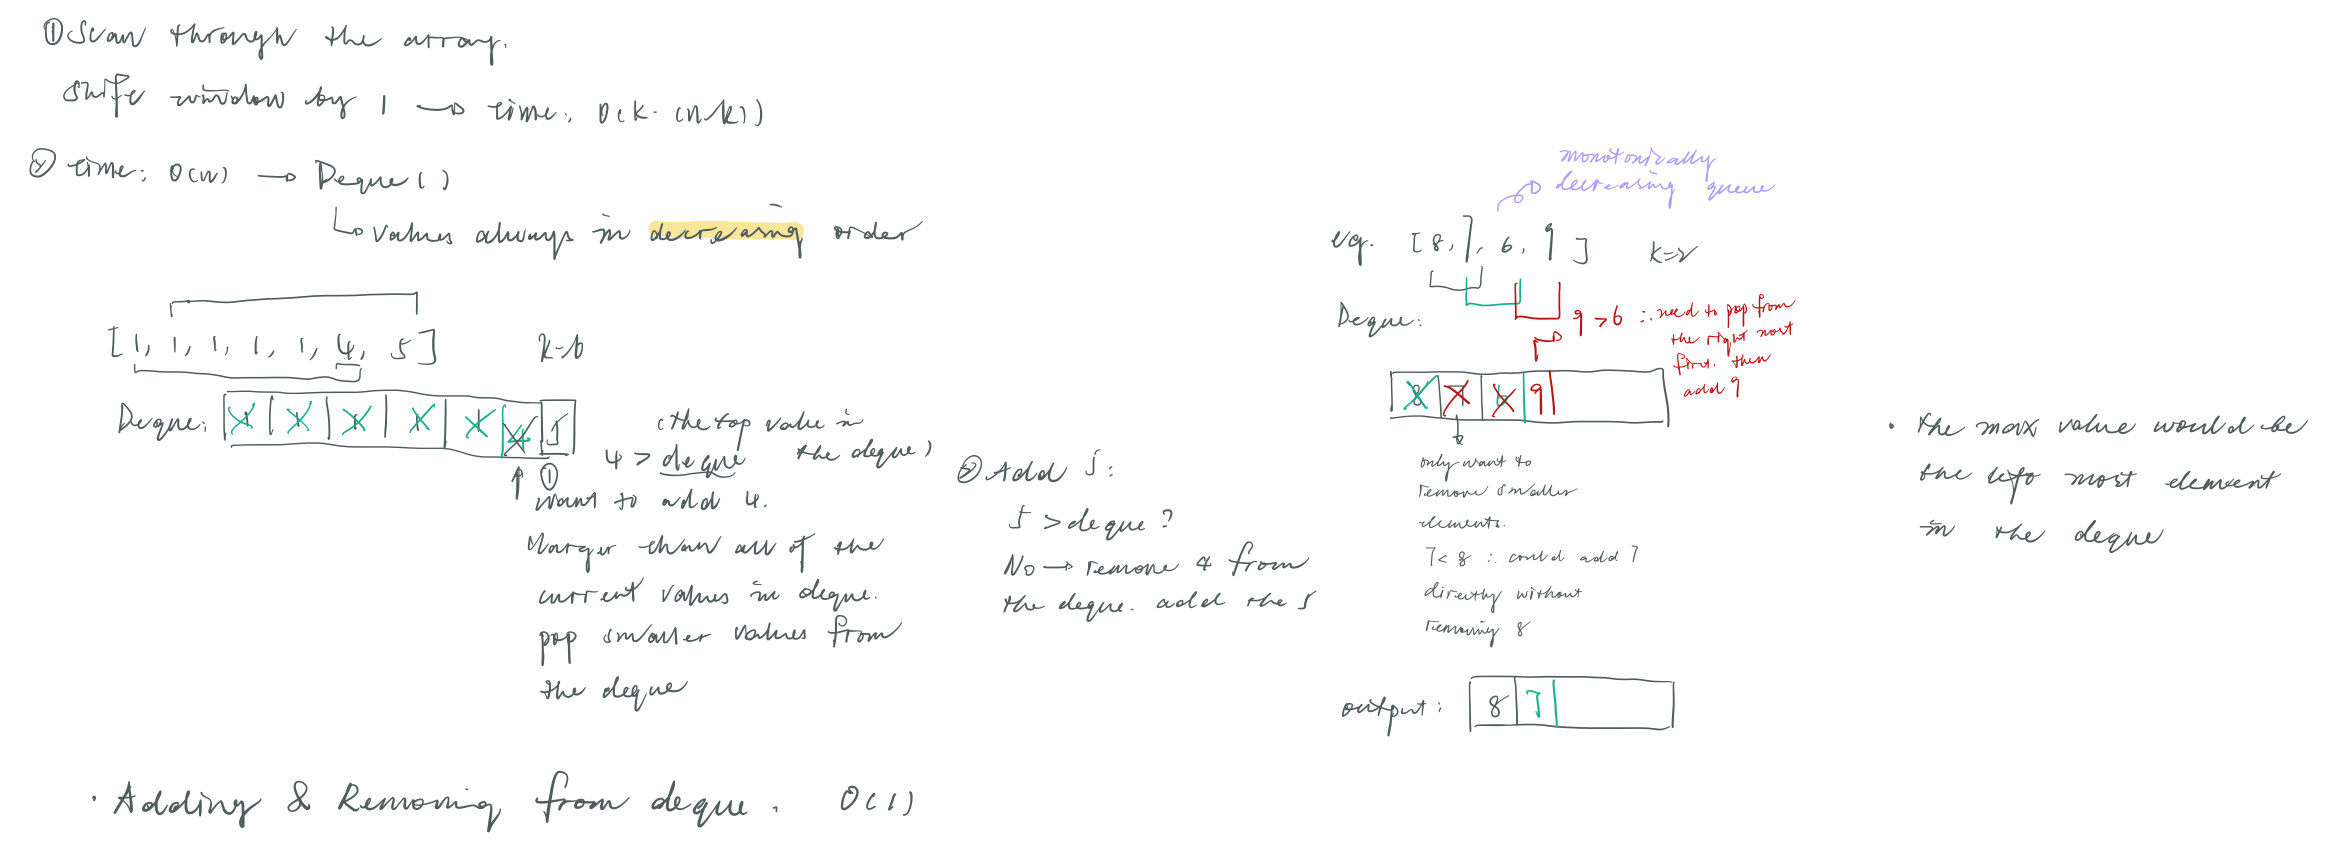 ① Scan through the array.
shift window by 1 → time: O(k·(n-k))
② time: O(n) → Deque()
↳ values always in decreasing order
[1, 1, 1, 1, 1, 4, 5] k=6
Deque: 1 1 1 1 1 4 5
①
4 > deque (the top value in the deque)
want to add 4.
larger than all of the
current values in deque.
pop smaller values from
the deque
② Add 5:
5 > deque?
No → remove 4 from
the deque. add the 5
monotonically
decreasing queue
eg. [8, 7, 6, 9] k=2
Deque:
9 > 6 ∴ need to pop from
the right most
first. then
add 9
8 7 6 9
only want to
remove smaller
elements.
7 < 8 ∴ could add 7
directly without
removing 8
output: 8 7
· the max value would be
the left most element
in the deque
· Adding & Removing from deque. O(1)